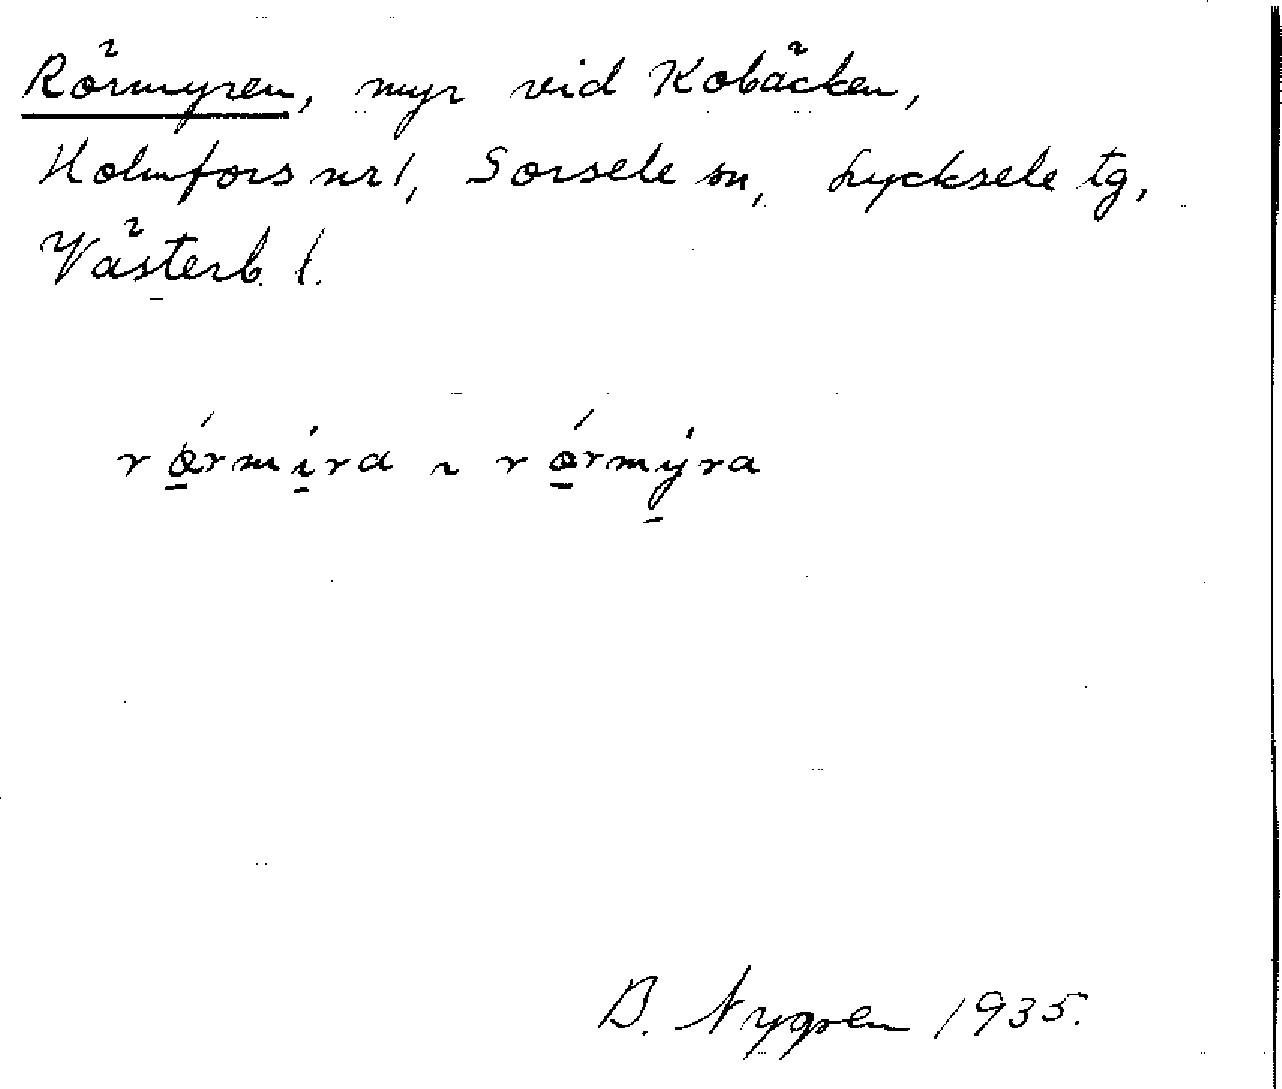 Rörmyren, myr vid Kobäcken,
Holmfors nr 1, Sorsele sn, Lycksele tg,
Västerb. l.
B. Nygren 1935.